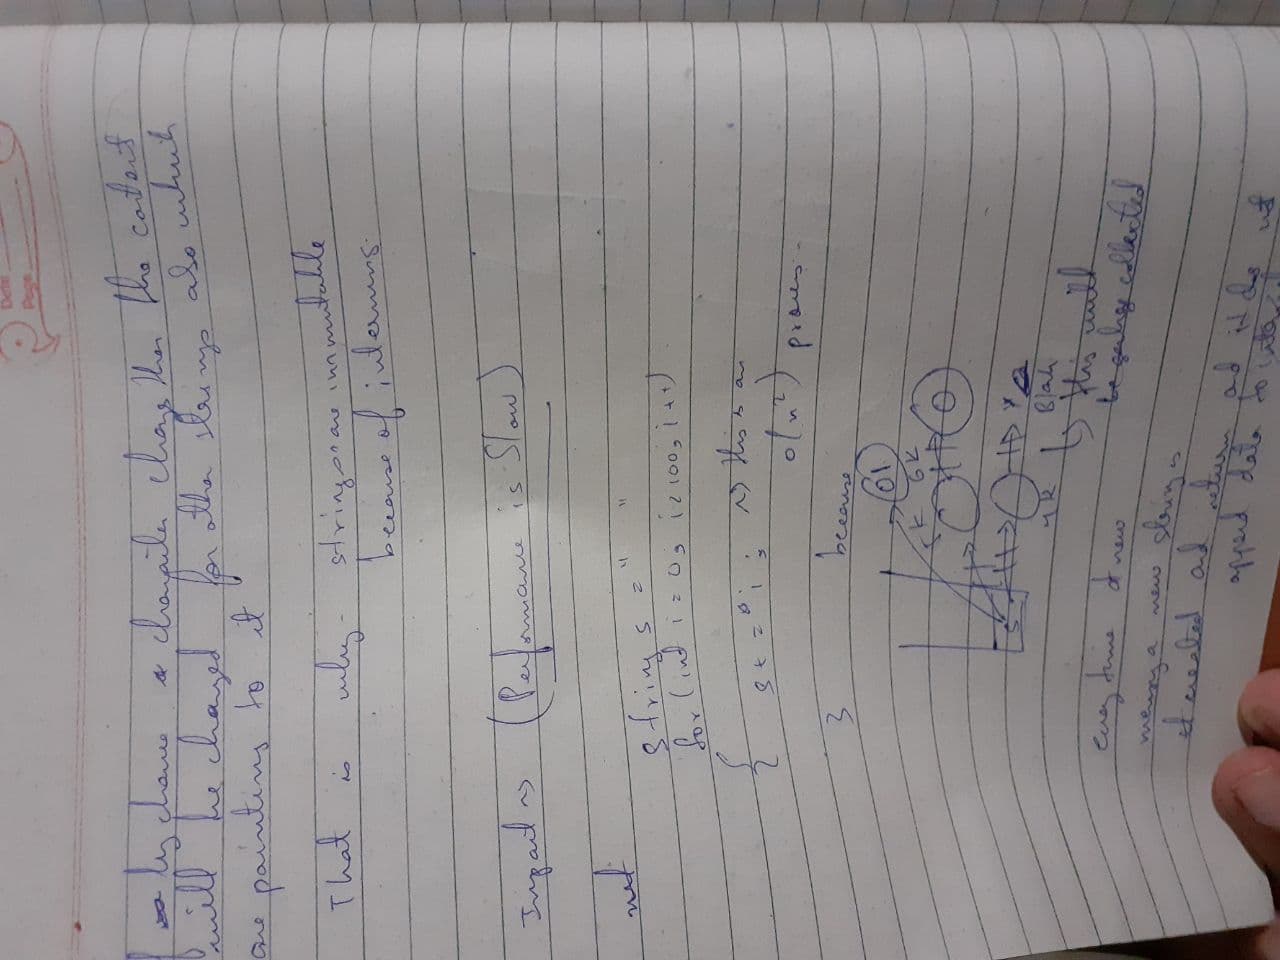 Date
Page
by chance a compiler change then the content
will be changed for other strings also which
are pointing to it
That is why - strings are immutable
because of interning.
Impact ~> (Performance is Slow)
String s = " "
for (int i = 0; i < 100; i++)
{
s += i; ~> this is an
O(n²) process.
}
because
01
0
5k 6k
S
4k Blah
↳ this will
be garbage collected
every time a new
memory a new string is
created and return and it does not
append data to